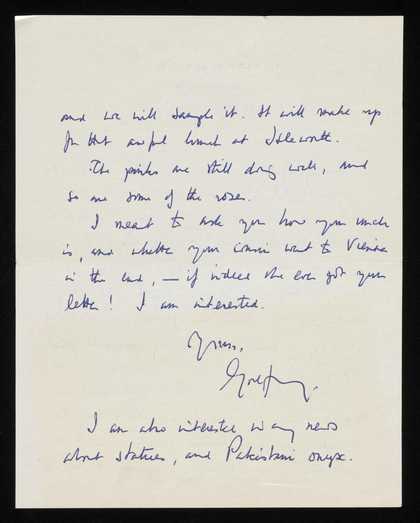 and we will sample it. It will make up
for that awful lunch at Isleworth.
The pinks are still doing well, and
so are some of the roses.
I meant to ask you how your uncle
is, and whether your cousin went to Vienna
in the end, – if indeed she ever got your
letter! I am interested.
Yours,
Godfrey.
I am also interested in any news
about statues, and Pakistani onyx.